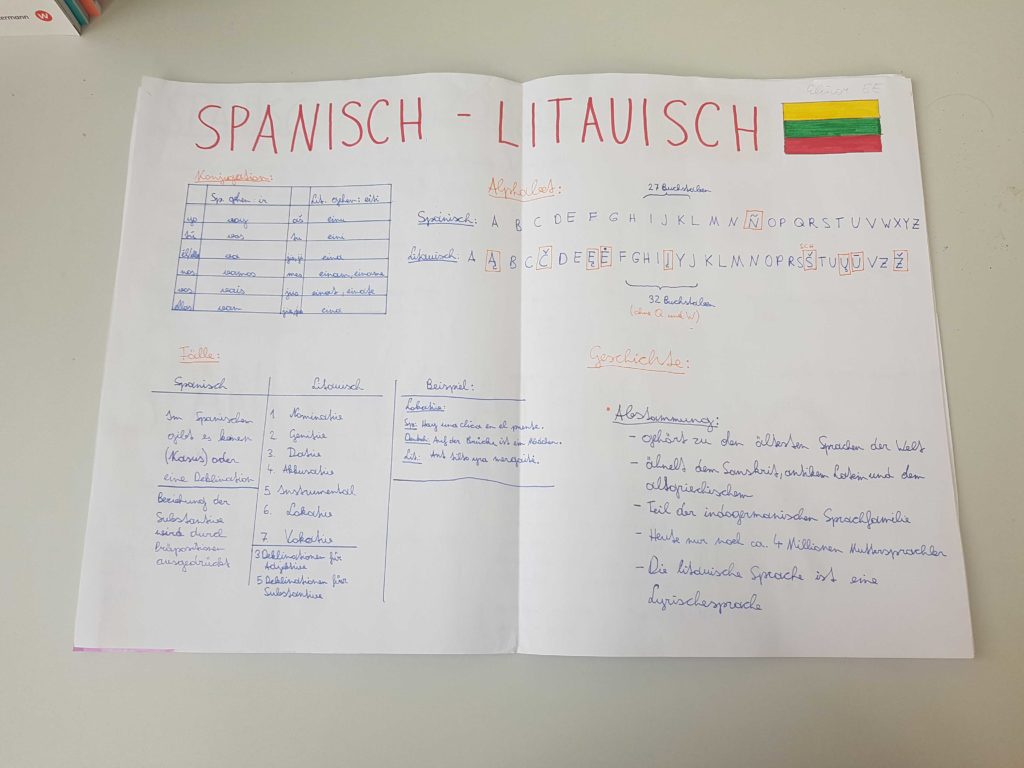 termann W
SPANISCH - LITAUISCH
Konjugation:
Sp. gehen: ir Lit. gehen: eiti
yo voy aš einu
tú vas tu eini
va eina
nos vamos mes einam, einame
vos vais jus einat, einate
ellos van eina
Alphabet:
27 Buchstaben
Spanisch: A B C D E F G H I J K L M N Ñ O P Q R S T U V W X Y Z
SCH
Litauisch: A Ą B C Č D E Ę Ė F G H I Į Y J K L M N O P R S Š T U Ų Ū V Z Ž
32 Buchstaben
(ohne Q und W)
Fälle:
Spanisch
Im Spanischen
gibt es keinen
(Kasus) oder
eine Deklination
Beziehung der
Substantive
wird durch
Präpositionen
ausgedrückt
Litauisch
1 Nominativ
2 Genitiv
3. Dativ
4. Akkusativ
5 Instrumental
6. Lokativ
7 Vokativ
3 Deklinationen für
Adjektive
5 Deklinationen für
Substantive
Beispiel:
Lokativ:
Sp: Hay una chica en el puente.
Deutsch: Auf der Brücke ist ein Mädchen.
Lit: Ant tilto yra mergaitė.
Geschichte:
Abstammung:
- gehört zu den ältesten Sprachen der Welt
- ähnelt dem Sanskrit, antiken Latein und dem
altgriechischem
- Teil der indogermanischen Sprachfamilie
- Heute nur noch ca. 4 Millionen Muttersprachler
- Die litauische Sprache ist eine
Lyrischesprache